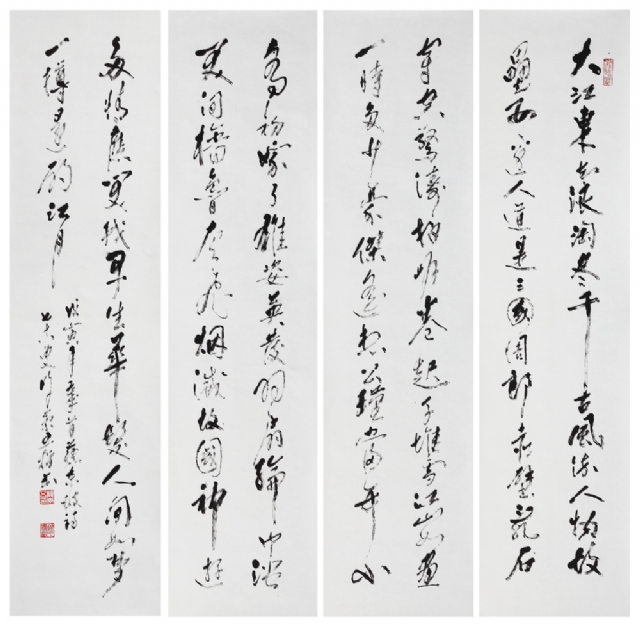 大江東去浪淘盡千古風流人物故
壘西邊人道是三國周郎赤壁亂石
穿空驚濤拍岸卷起千堆雪江山如畫
一時多少豪傑遙想公瑾當年小
喬初嫁了雄姿英發羽扇綸巾談
笑間檣魯灰飛烟滅故國神遊
多情應笑我早生華髮人間如夢
一樽還酹江月
戊寅年書蘇東坡詞